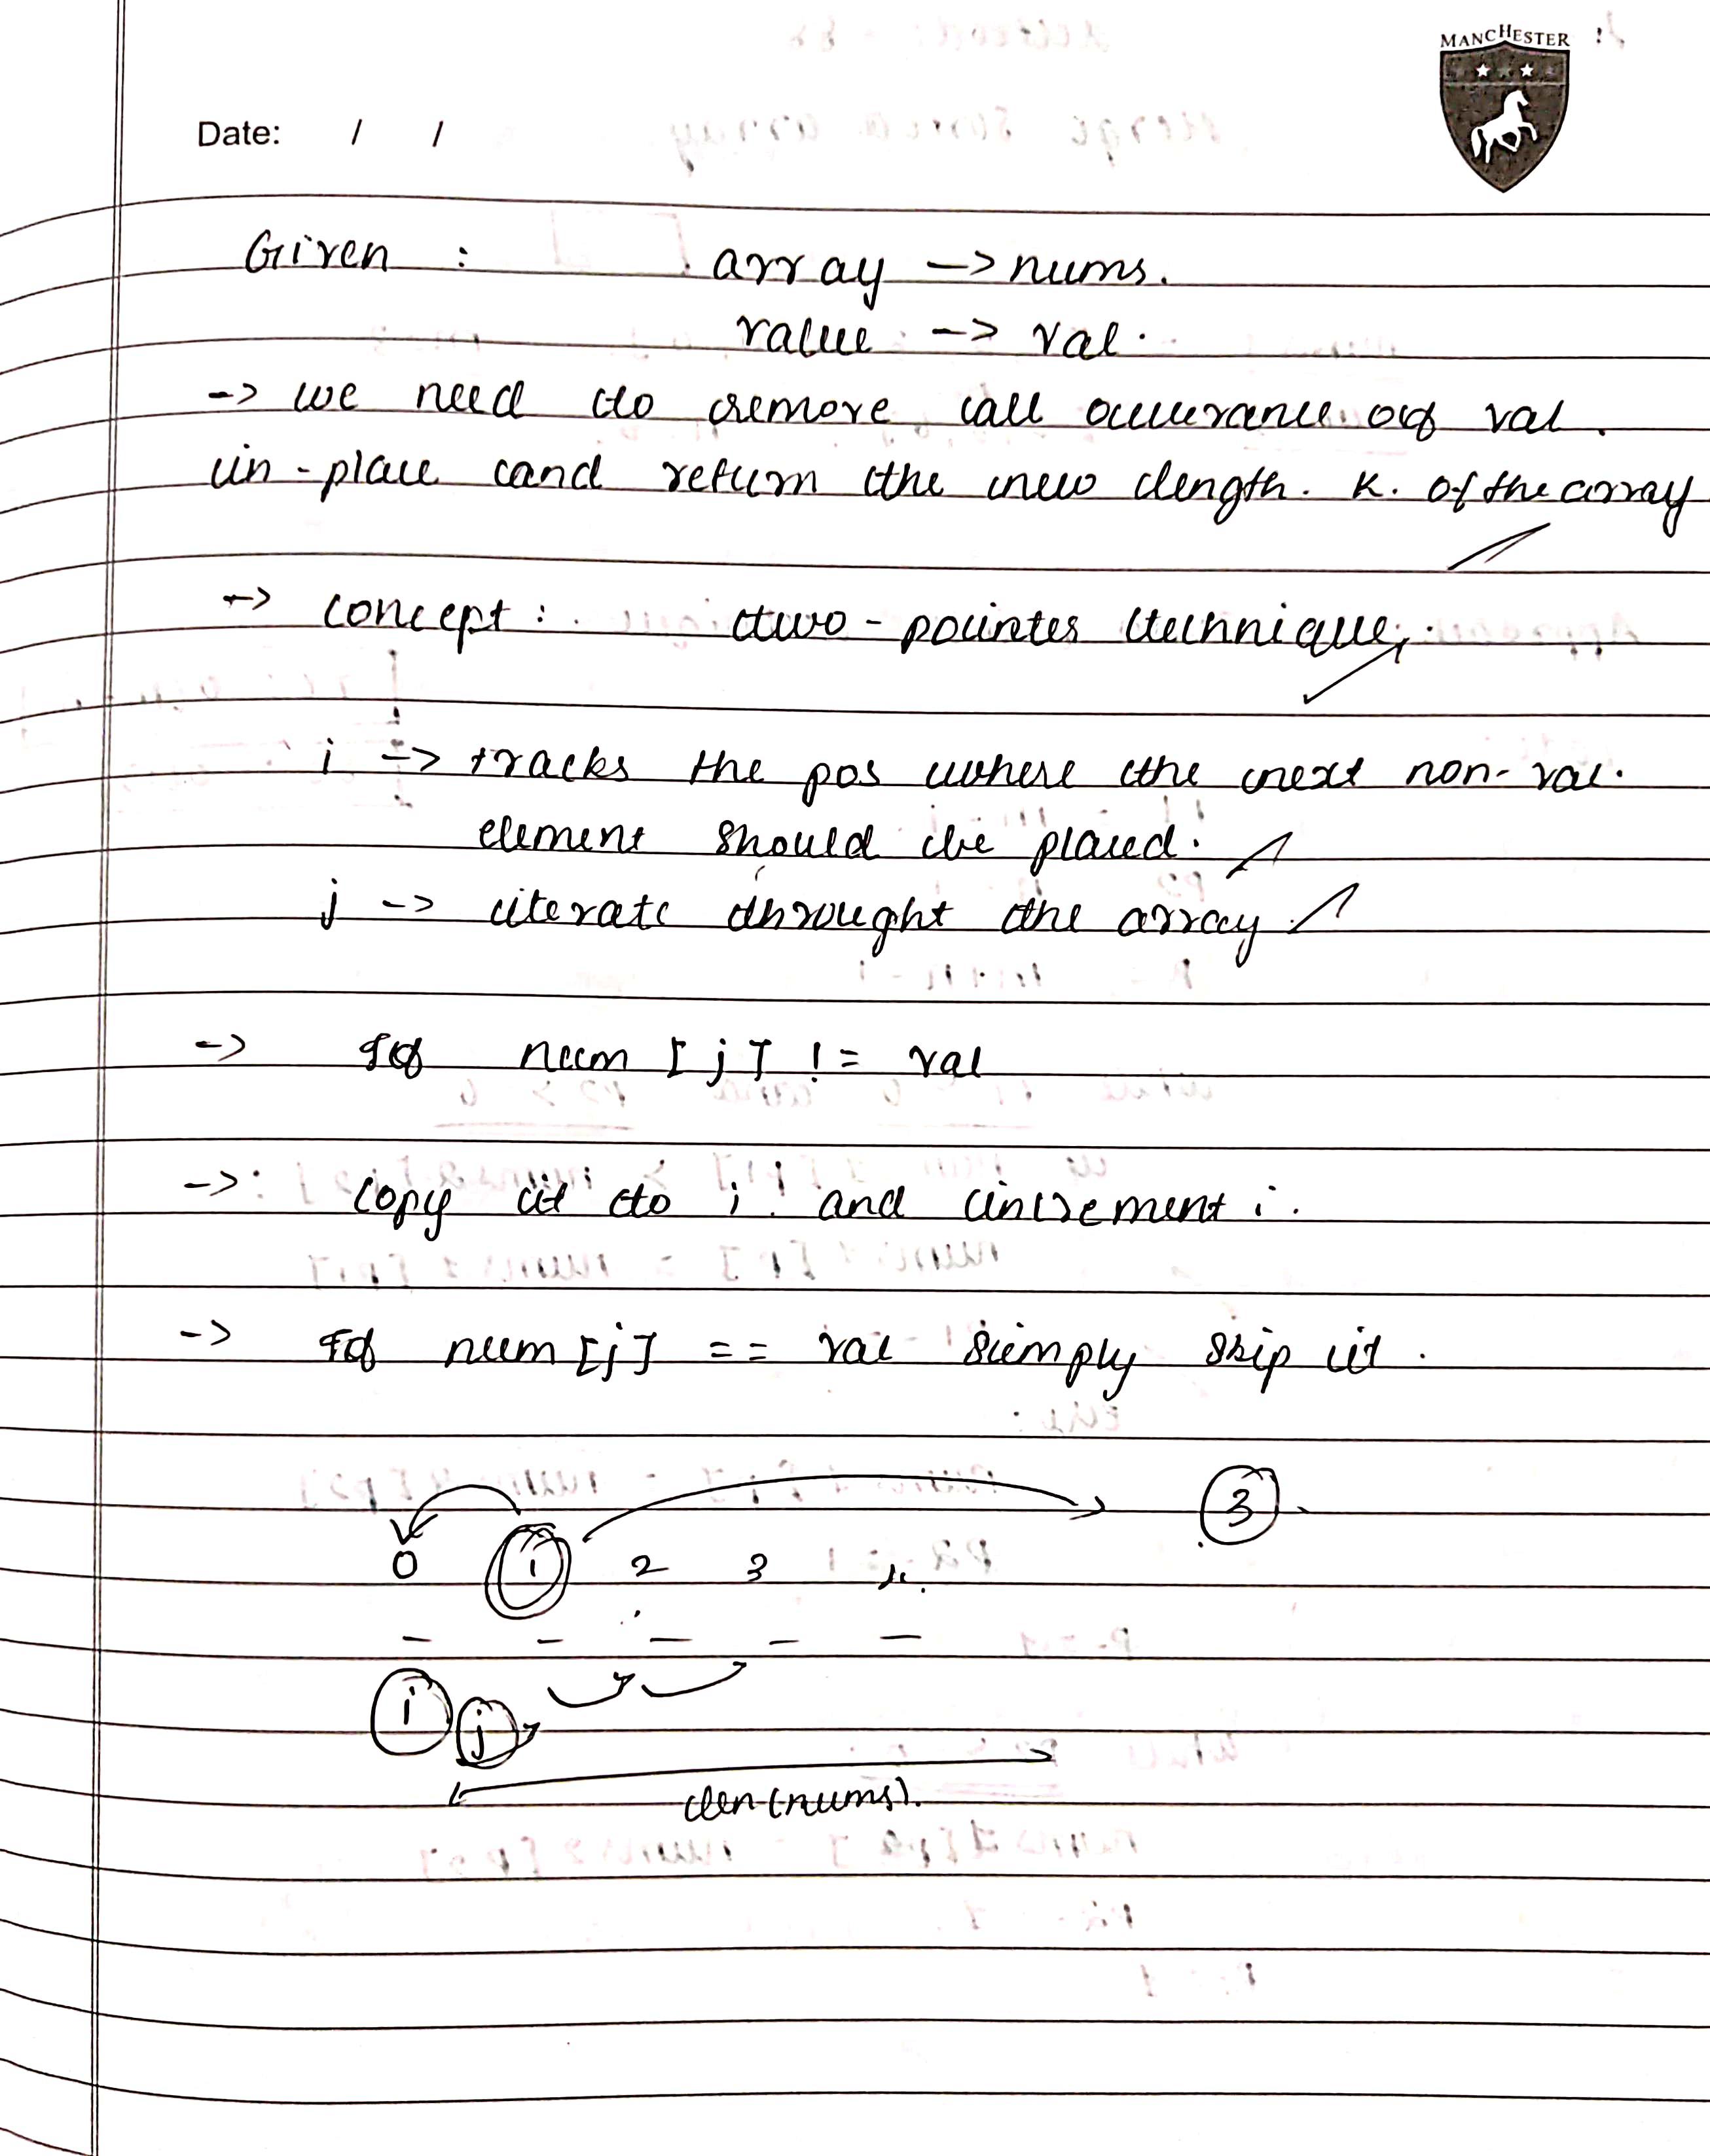 MANCHESTER
Date: / /
Given : array -> nums.
value -> val.
-> we need to remove all occurance of val.
in-place and return the new length. K. of the array
-> concept : two-pointes technique,.
i -> tracks the pos where the next non-val.
element should be placed.
j -> iterate throught the array
-> If num [j] != val
-> : copy it to i and increment i.
-> If num[j] == val simply skip it.
3
0 1 2 3
i j
len(nums).